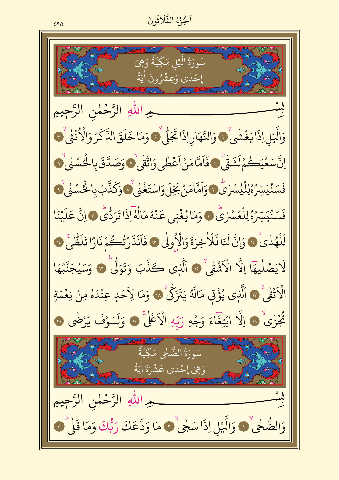 اَلْجُزْءُ الثَّلَاثُونَ
٥٩٥
سُورَةُ الَّيْلِ مَكِّيَّةٌ وَهِىَ
اِحْدٰى وَعِشْرُونَ اٰيَةً
بِسْمِ اللّٰهِ الرَّحْمٰنِ الرَّحِيمِ
وَالَّيْلِ اِذَا يَغْشٰىۙ ١ وَالنَّهَارِ اِذَا تَجَلّٰىۙ ٢ وَمَا خَلَقَ الذَّكَرَ وَالْاُنْثٰىۙ ٣
اِنَّ سَعْيَكُمْ لَشَتّٰىۜ ٤ فَاَمَّا مَنْ اَعْطٰى وَاتَّقٰىۙ ٥ وَصَدَّقَ بِالْحُسْنٰىۙ ٦
فَسَنُيَسِّرُهُ لِلْيُسْرٰىۜ ٧ وَاَمَّا مَنْ بَخِلَ وَاسْتَغْنٰىۙ ٨ وَكَذَّبَ بِالْحُسْنٰىۙ ٩
فَسَنُيَسِّرُهُ لِلْعُسْرٰىۜ ١٠ وَمَا يُغْنٖى عَنْهُ مَالُهُٓ اِذَا تَرَدّٰىۜ ١١ اِنَّ عَلَيْنَا
لَلْهُدٰىۘ ١٢ وَاِنَّ لَنَا لَلْاٰخِرَةَ وَالْاُو۫لٰى ١٣ فَاَنْذَرْتُكُمْ نَارًا تَلَظّٰىۚ ١٤
لَا يَصْلٰيهَٓا اِلَّا الْاَشْقٰىۙ ١٥ اَلَّذٖى كَذَّبَ وَتَوَلّٰىۜ ١٦ وَسَيُجَنَّبُهَا
الْاَتْقٰىۙ ١٧ اَلَّذٖى يُؤْتٖى مَالَهُ يَتَزَكّٰىۚ ١٨ وَمَا لِاَحَدٍ عِنْدَهُ مِنْ نِعْمَةٍ
تُجْزٰىۙ ١٩ اِلَّا ابْتِغَٓاءَ وَجْهِ رَبِّهِ الْاَعْلٰىۚ ٢٠ وَلَسَوْفَ يَرْضٰى ٢١
سُورَةُ الضُّحٰى مَكِّيَّةٌ
وَهِىَ اِحْدٰى عَشْرَةَ اٰيَةً
بِسْمِ اللّٰهِ الرَّحْمٰنِ الرَّحِيمِ
وَالضُّحٰىۙ ١ وَالَّيْلِ اِذَا سَجٰىۙ ٢ مَا وَدَّعَكَ رَبُّكَ وَمَا قَلٰىۜ ٣